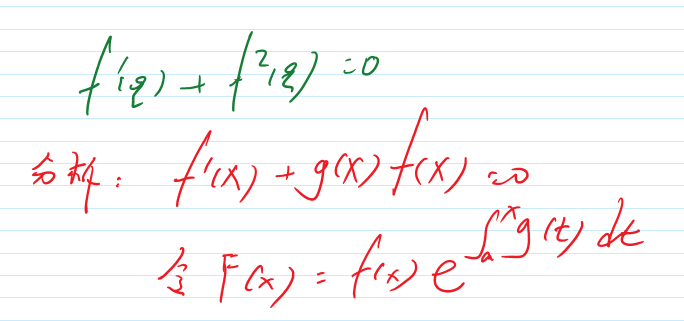 f'(ξ) + f²(ξ) = 0
分析: f'(x) + g(x) f(x) = 0
令 F(x) = f(x) e^{∫_a^x g(t) dt}